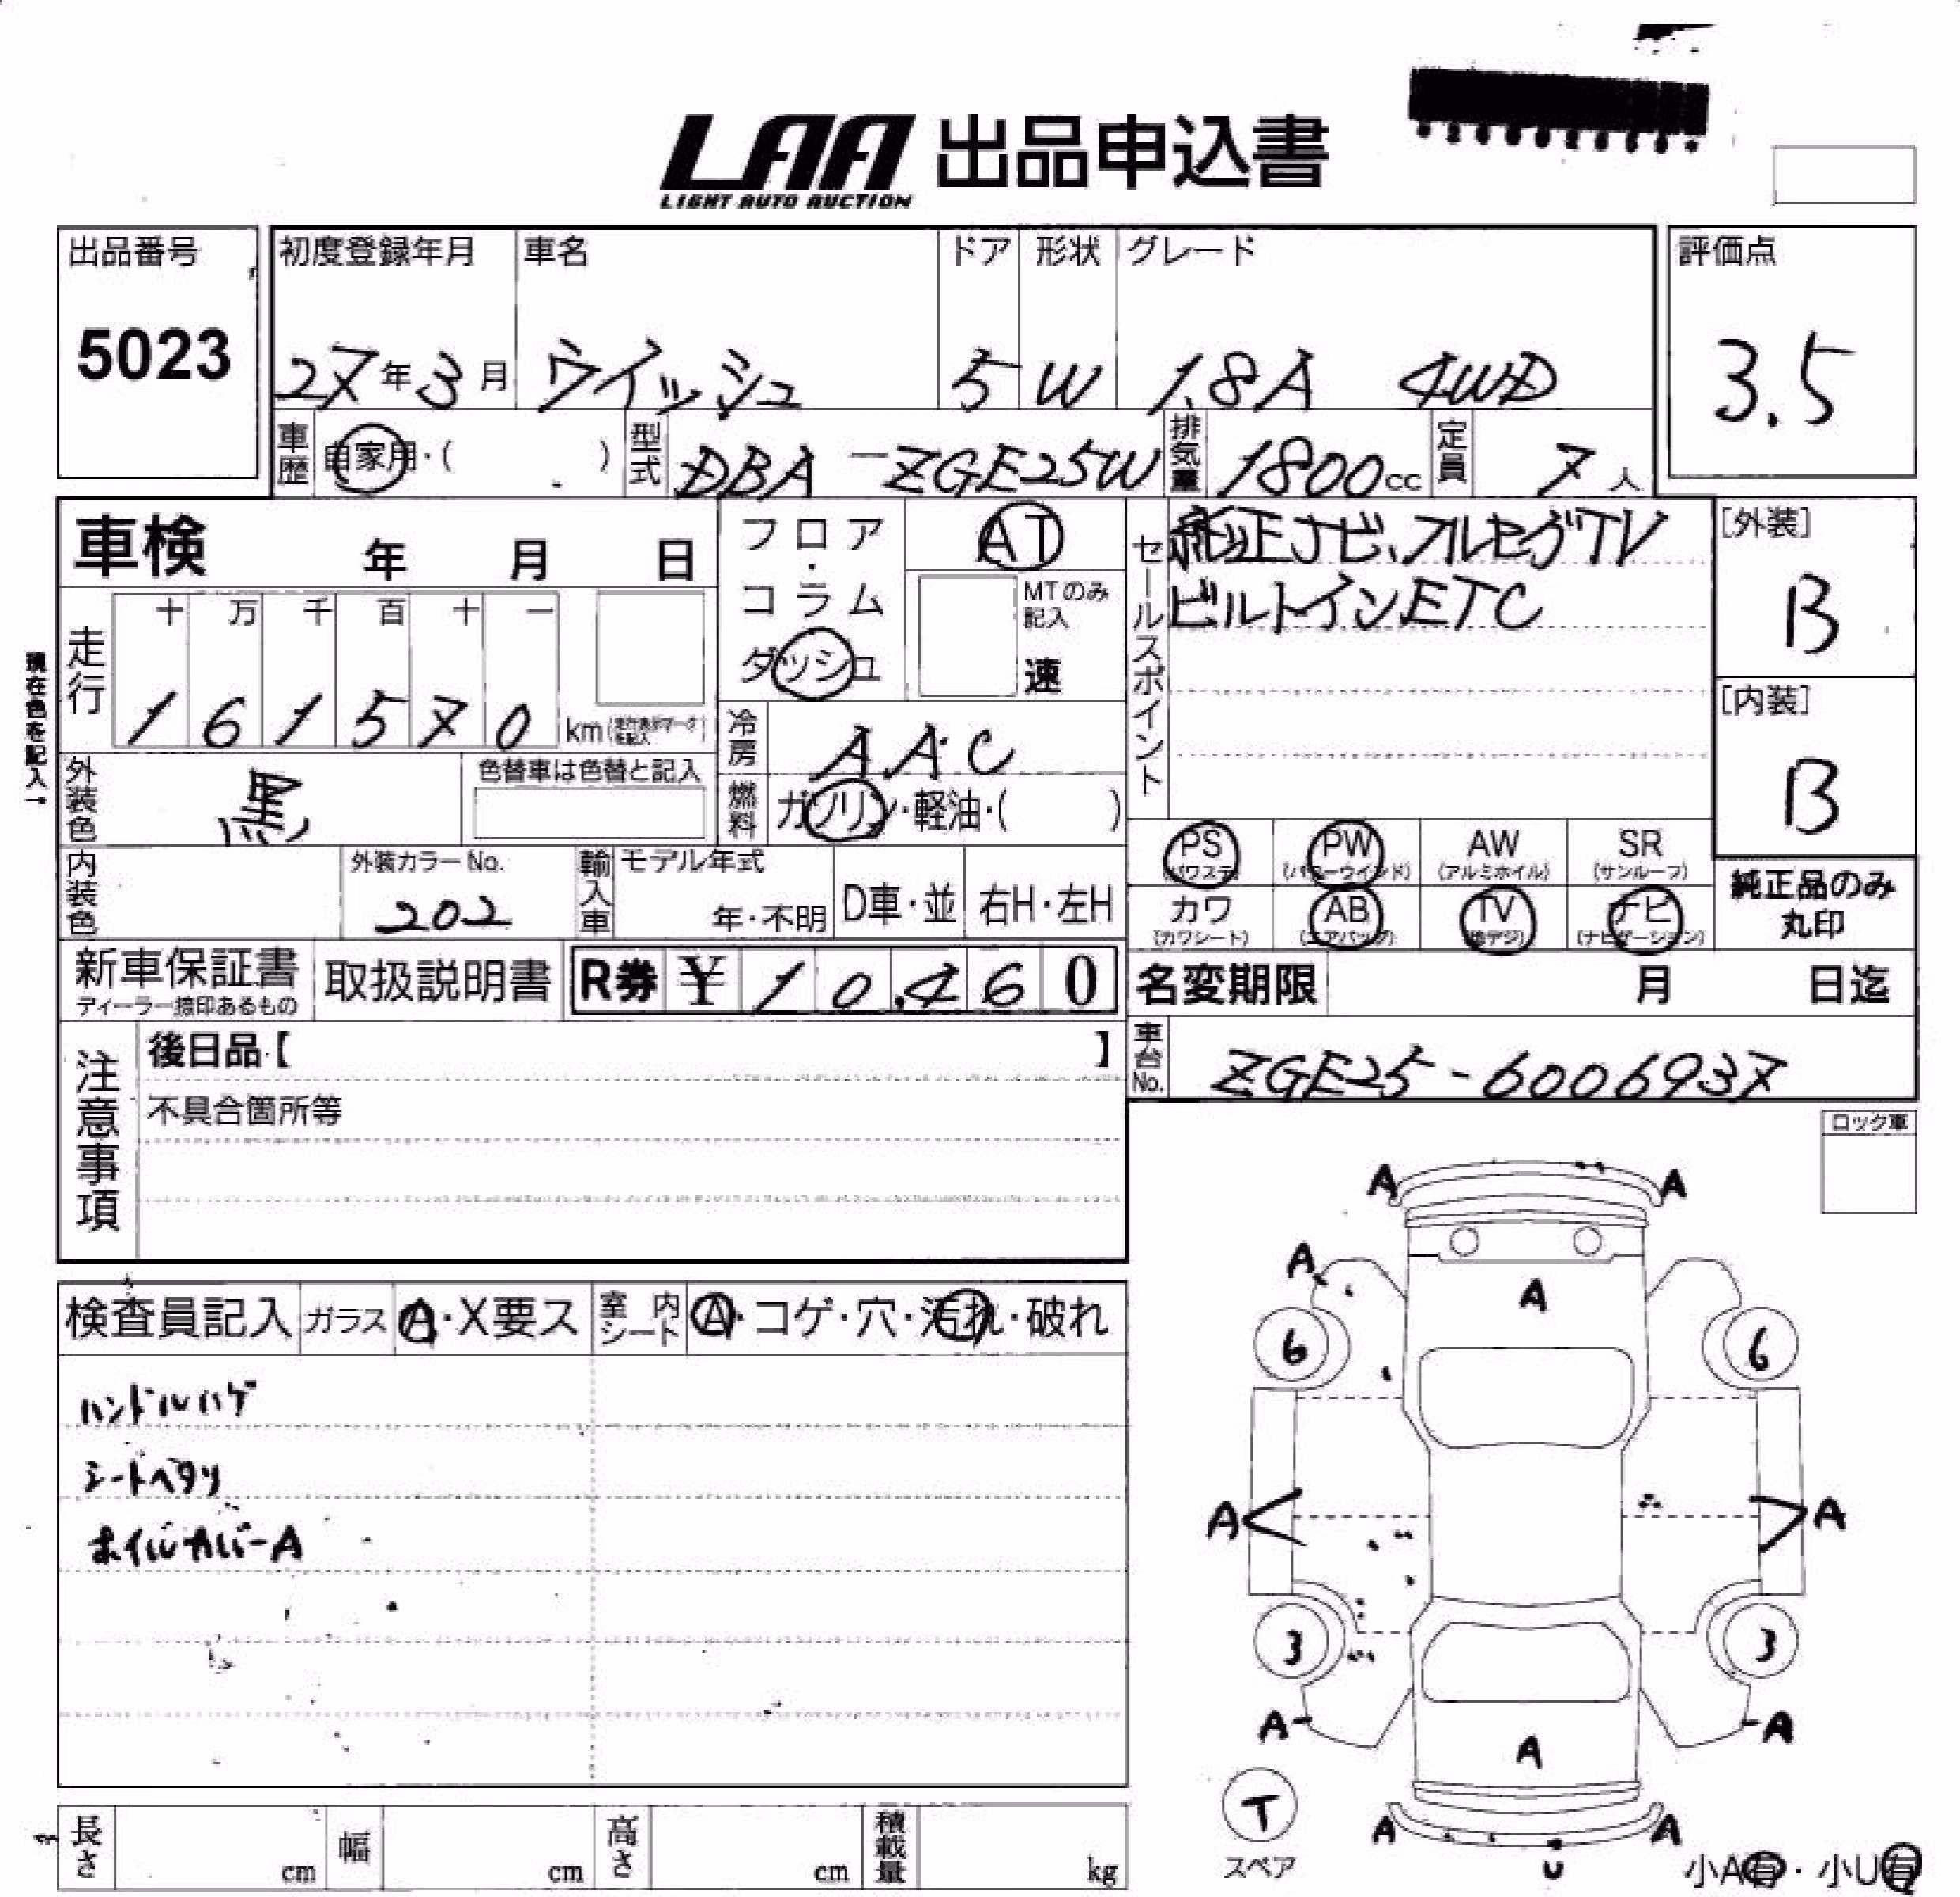 LAA 出品申込書
LIGHT AUTO AUCTION
出品番号 初度登録年月 車名 ドア 形状 グレード 評価点
5023 27年3月 ウイッシュ 5 W 1.8A 4WD 3.5
車歴 自家用・( ) 型式 DBA-ZGE25W 排気量 1800cc 定員 7人
車検 年 月 日
フロア・コラム ダッシュ
AT
MTのみ記入
速
セールスポイント
純正ナビ、フルセグTV
ビルトインETC
[外装]
B
[内装]
B
現在色を記入→
走行 十 万 千 百 十 一
1 6 1 5 7 0 km
冷房 AAC
外装色 黒 色替車は色替と記入
燃料 ガソリン・軽油・( )
PS PW AW SR
(パワステ) (パワーウインド) (アルミホイル) (サンルーフ)
カワ AB TV ナビ
(カワシート) (エアバッグ) (地デジ) (ナビゲーション)
純正品のみ
丸印
内装色 外装カラーNo. 202 輸入車 モデル年式 年・不明 D車・並 右H・左H
新車保証書 取扱説明書 R券 ¥ 1 0,4 6 0
ディーラー捺印あるもの
名変期限 月 日迄
車台No. ZGE25-6006937
注意事項
後日品【 】
不具合箇所等
ロック車
検査員記入 ガラス A・X要ス 室内シート A・コゲ・穴・汚れ・破れ
ハンドルハゲ
シートヘタリ
ホイルカバーA
A A
A
A
6 6
A A
3 3
A A
A
T
スペア
A A
U
小A有・小U有
長さ cm 幅 cm 高さ cm 積載量 kg